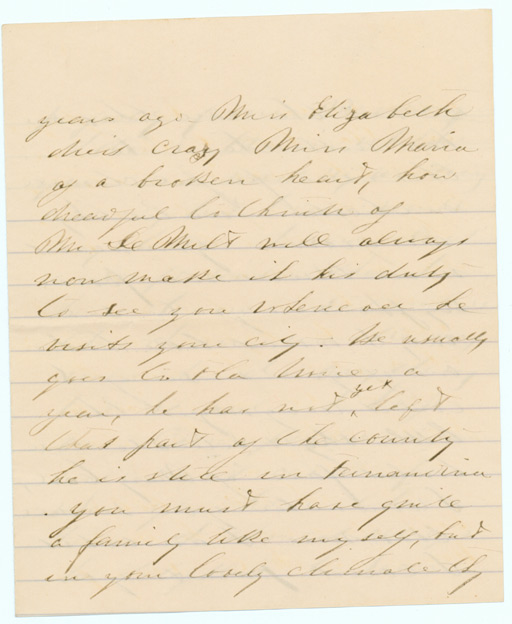 years ago. Miss Elizabeth
dies crazy Miss Maria
of a broken heart, how
dreadful to think of
Mr De Milt will always
now make it his duty
to see you whenever he
visits your city. He usually
goes to Fla twice a
year, he has not yet left
that part of the country
he is still in Fernandina
. you must have quite
a family like myself, but
in your lovely climate they